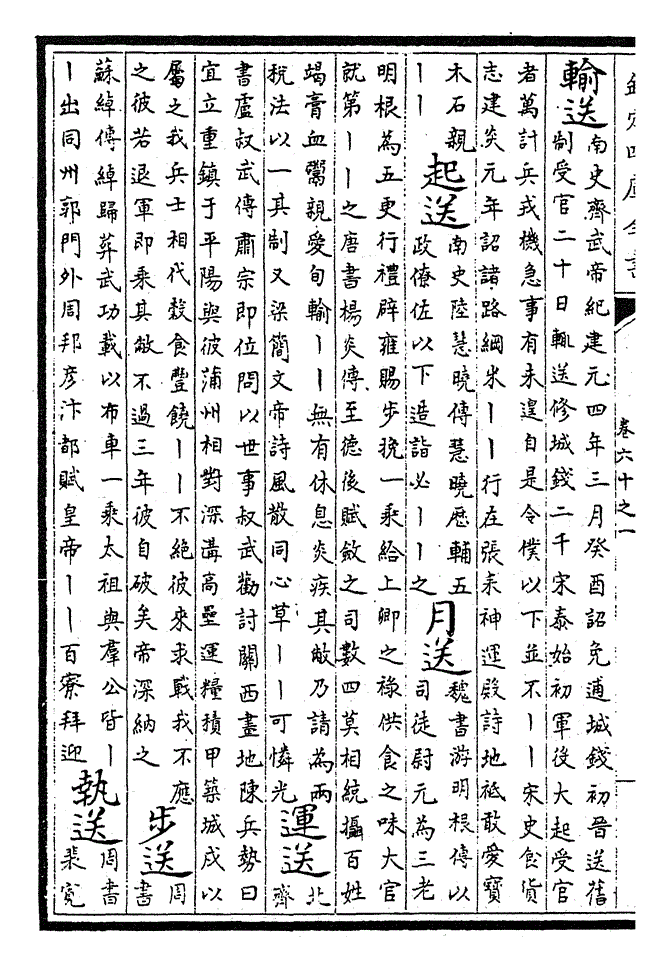 欽定四庫全書
卷六十之一
輸送
南史齊武帝紀建元四年三月癸酉詔免逋城錢初晉送舊
制受官二十日輒送修城錢二千宋泰始初軍役大起受官
者萬計兵戎機急事有未遑自是令僕以下並不丨丨宋史食貨
志建炎元年詔諸路綱米丨丨行在張耒神運殿詩地祗敢愛寶
木石親
丨丨
起送
南史陸慧曉傳慧曉歷輔五
政僚佐以下造詣必丨丨之
月送
魏書游明根傳以
司徒尉元為三老
明根為五更行禮辟雍賜步挽一乘給上卿之祿供食之味大官
就第丨丨之唐書楊炎傳至德後賦斂之司數四莫相統攝百姓
竭膏血鬻親愛旬輸丨丨無有休息炎疾其敝乃請為兩
稅法以一其制又梁簡文帝詩風散同心草丨丨可憐光
運送
北
齊
書盧叔武傳肅宗即位問以世事叔武勸討關西畫地陳兵勢曰
宜立重鎮于平陽與彼蒲州相對深溝高壘運糧積甲築城戍以
屬之我兵士相代穀食豐饒丨丨不絕彼來求戰我不應
之彼若退軍即乘其敝不過三年彼自破矣帝深納之
步送
周
書
蘇綽傳綽歸葬武功載以布車一乘太祖與羣公皆丨
丨出同州郭門外周邦彥汴都賦皇帝丨丨百寮拜迎
執送
周書
裴寬